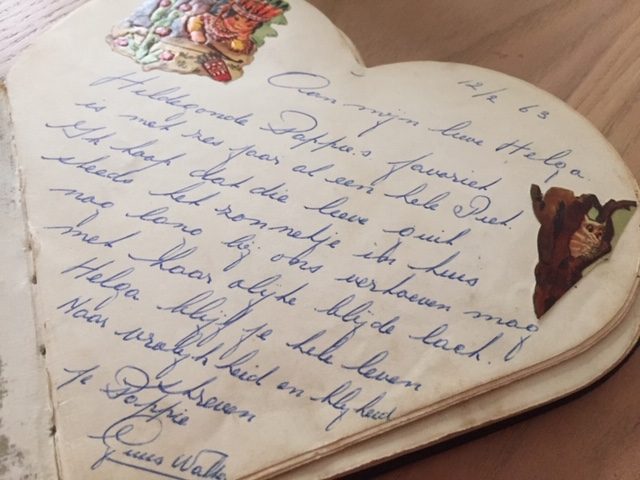 12/2 63
Aan mijn lieve Helga.
Hildegonde Pappie's favoriet
is met zes jaar al een hele Piet.
Ik hoop dat die lieve guit
steeds het zonnetje in huis
nog lang bij ons vertoeven mag
met haar olijke blijde lach.
Helga blijf je hele leven
Naar vrolijkheid en blijheid
streven
je Pappie
Guus